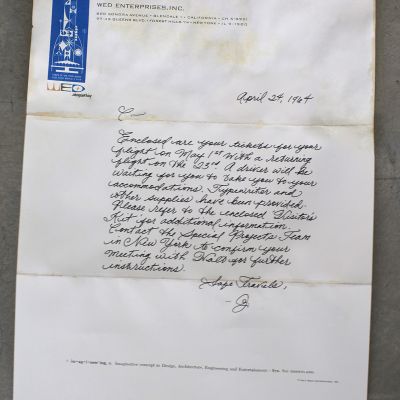 WED ENTERPRISES, INC.
800 SONORA AVENUE • GLENDALE 1 • CALIFORNIA • CH 5-3151
97-45 QUEENS BLVD. • FOREST HILLS 74 • NEW YORK •
WED
imagineering
April 24, 1964
C—
Enclosed are your tickets for your
flight on May 1st with a returning
flight on the 23rd. A driver will be
waiting for you to take you to your
accommodations. Typewriter and
other supplies have been provided.
Please refer to the enclosed Visitor's
Kit for additional information.
Contact the Special Projects Team
in New York to confirm your
meeting with Walt for further
instructions.
Safe Travels,
im•ag•i•neer•ing, n. Imaginative concept in Design, Architecture, Engineering and Entertainment